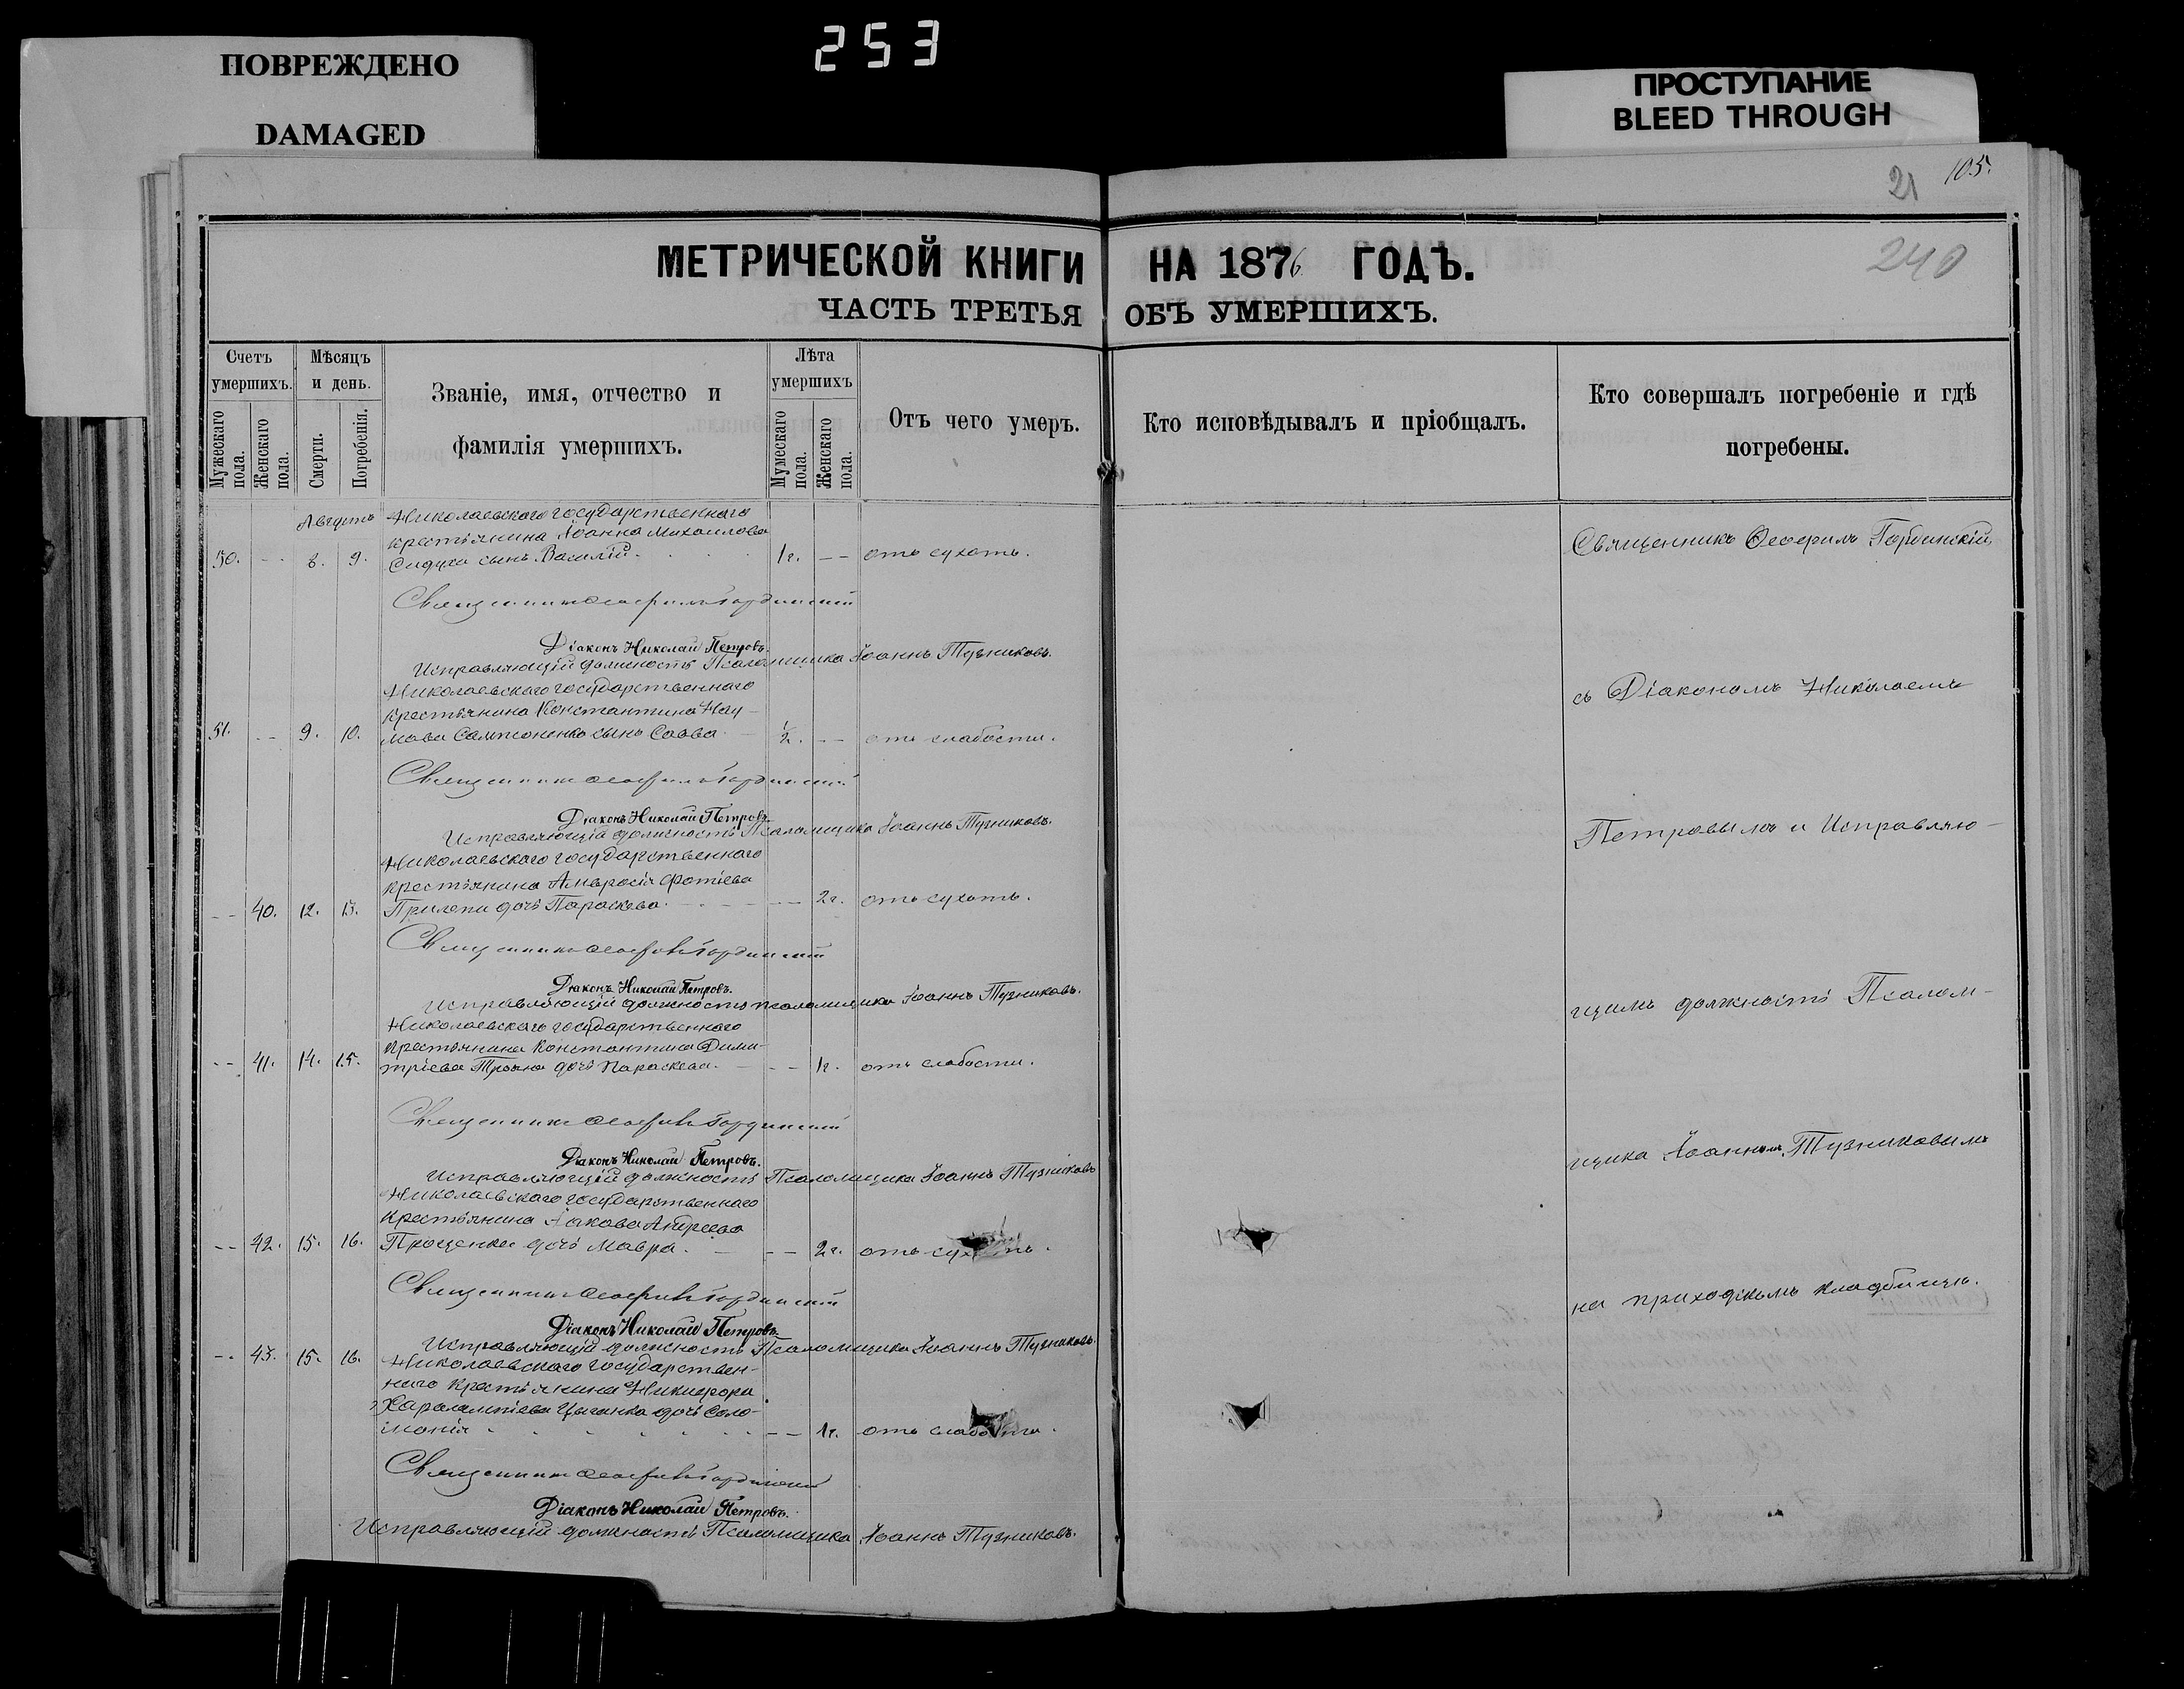 253
ПОВРЕЖДЕНО
DAMAGED
ПРОСТУПАНИЕ
BLEED THROUGH
21 105.
240
МЕТРИЧЕСКОЙ КНИГИ НА 1876 ГОДЪ.
ЧАСТЬ ТРЕТЬЯ ОБЪ УМЕРШИХЪ.
Счетъ умершихъ.
Мужескаго пола.
Женскаго пола.
Мѣсяцъ и день.
Смерти.
Погребенія.
Званіе, имя, отчество и
фамилія умершихъ.
Лѣта умершихъ
Мужескаго пола.
Женскаго пола.
Отъ чего умеръ.
Кто исповѣдывалъ и пріобщалъ.
Кто совершалъ погребеніе и гдѣ
погребены.
Августъ Николаевскаго государственнаго
крестьянина Іоанна Михаилова
50. -- 8. 9. сынъ Василій. 1г. -- отъ сухотъ.
Священникъ Ѳеофилъ
Діаконъ Николай Петровъ.
Исправляющій должность Псаломщика Іоаннъ Тузниковъ.
Николаевскаго государственнаго
крестьянина Константина Нау-
51. -- 9. 10. мова сынъ Савва ½. -- отъ слабости.
Священникъ Ѳеофилъ
Діаконъ Николай Петровъ.
Исправляющій должность Псаломщика Іоаннъ Тузниковъ.
Николаевскаго государственнаго
крестьянина Амвросія Фотіева
-- 40. 12. 13. Прилепи дочь Параскева. -- 2г. отъ сухотъ.
Священникъ Ѳеофилъ
Діаконъ Николай Петровъ.
Исправляющій должность псаломщика Іоаннъ Тузниковъ.
Николаевскаго государственнаго
крестьянина Константина Дими-
-- 41. 14. 15. тріева Трояна дочь Параскева. -- 1г. отъ слабости.
Священникъ Ѳеофилъ
Діаконъ Николай Петровъ.
Исправляющій должность Псаломщика Іоаннъ Тузниковъ
Николаевскаго государственнаго
крестьянина Іакова Андреева
-- 42. 15. 16. Проценка дочь Мавра. -- 2г. отъ сухотъ.
Священникъ Ѳеофилъ
Діаконъ Николай Петровъ.
Исправляющій должность Псаломщика Іоаннъ Тузниковъ.
-- 43. 15. 16. Николаевскаго государствен-
наго крестьянина Никифора
Харалампіева Цыганка дочь Соло-
монія -- 1г. отъ слабости.
Священникъ Ѳеофилъ
Діаконъ Николай Петровъ.
Исправляющій должность Псаломщика Іоаннъ Тузниковъ.
Священникъ Ѳеофилъ
съ Діакономъ Николаемъ
Петровымъ и Исправляю-
щимъ должность Псалом-
щика Іоанномъ Тузниковымъ
на приходскомъ кладбищѣ.